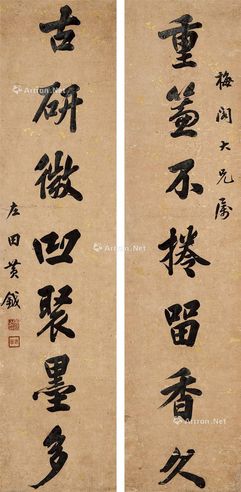 梅閣大兄屬
重簾不捲留香久
古研微凹聚墨多
左田黃鉞
Artron.Net
Artron.Net